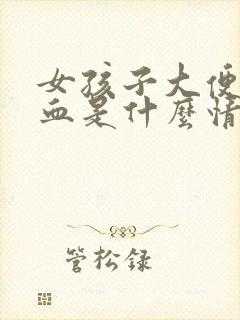 女孩子大便
血是什麼情
管松録